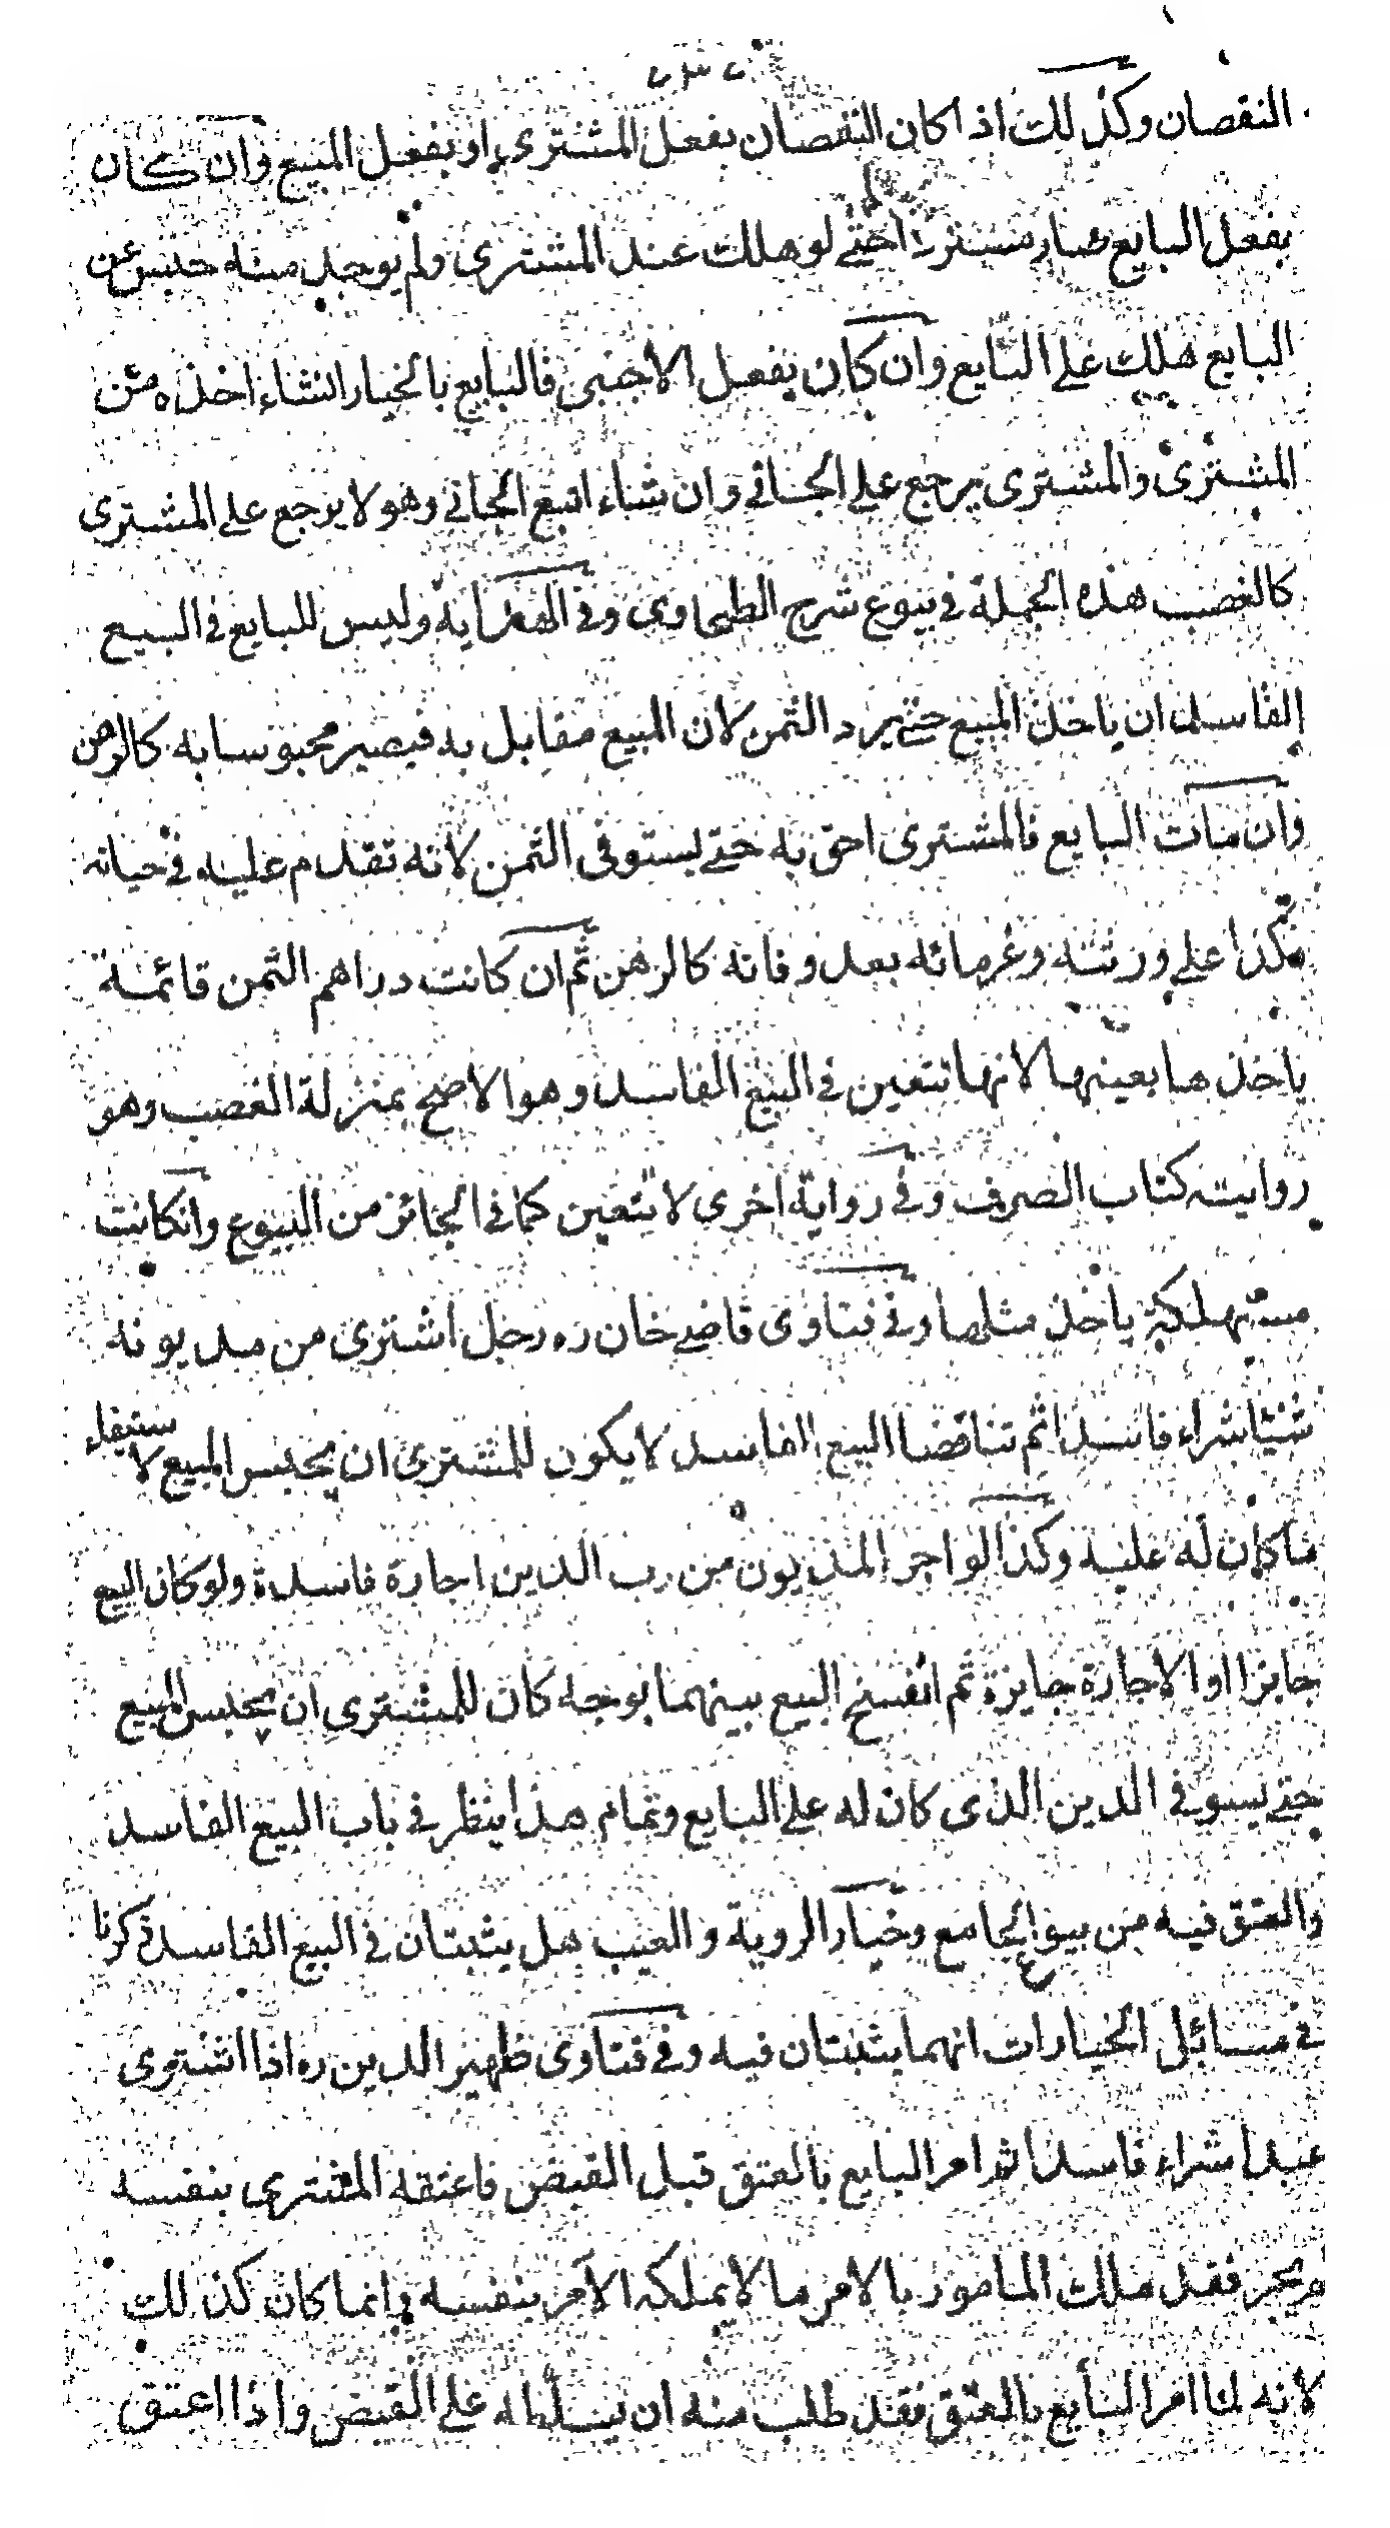 النقصان وكذلك اذا كان النقصان بفعل المشترى او بفعل المبيع وان كان
بفعل البايع صار مستردا حتى لو هلك عند المشترى ولم يوجد منه حبس عن
البايع هلك على البايع وان كان بفعل الاجنبى فالبايع بالخيار ان شاء اخذه من
المشترى والمشترى يرجع على الجانى وان شاء اتبع الجانى وهو لا يرجع على المشترى
كالغصب هذه الجملة فى بيوع شرح الطحاوى وفى الهداية وليس للبايع فى البيع
الفاسد ان ياخذ المبيع حتى يرد الثمن لان المبيع مقابل به فيصير محبوسا به كالرهن
وان مات البايع فالمشترى احق به حتى يستوفى الثمن لانه تقدم عليه فى حياته
فكذا على ورثته وغرمائه بعد وفاته كالرهن ثم ان كانت دراهم الثمن قائمة
ياخذها بعينها لانها تتعين فى البيع الفاسد وهو الاصح بمنزلة الغصب وهو
رواية كتاب الصرف وفى رواية اخرى لا تتعين كما فى الجائز من البيوع وانكانت
مستهلكة ياخذ مثلها وفى فتاوى قاضى خان ره رجل اشترى من مديونه
شيئا شراء فاسدا ثم تناقضا البيع الفاسد لا يكون للمشترى ان يحبس المبيع لاستيفاء
ما كان له عليه وكذا لو اجر المديون من رب الدين اجارة فاسدة ولو كان البيع
جايزا او الاجارة جايزة ثم انفسخ البيع بينهما بوجه كان للمشترى ان يحبس المبيع
حتى يستوفى الدين الذى كان له على البايع وتمام هذا ينظر فى باب البيع الفاسد
والعتق فيه من بيوع الجامع وخيار الروية والعيب هل يثبتان فى البيع الفاسد ذكرنا
فى مسائل الخيارات انهما يثبتان فيه وفى فتاوى ظهير الدين ره اذا اشترى
عبدا شراء فاسدا ثم امر البايع بالعتق قبل القبض فاعتقه المشترى بنفسه
لم يجز فقد ملك المامور بالامر ما لا يملكه الآمر بنفسه وانما كان كذلك
لانه لما امر البايع بالعتق فقد طلب منه ان يسلطه على القبض واذا اعتق